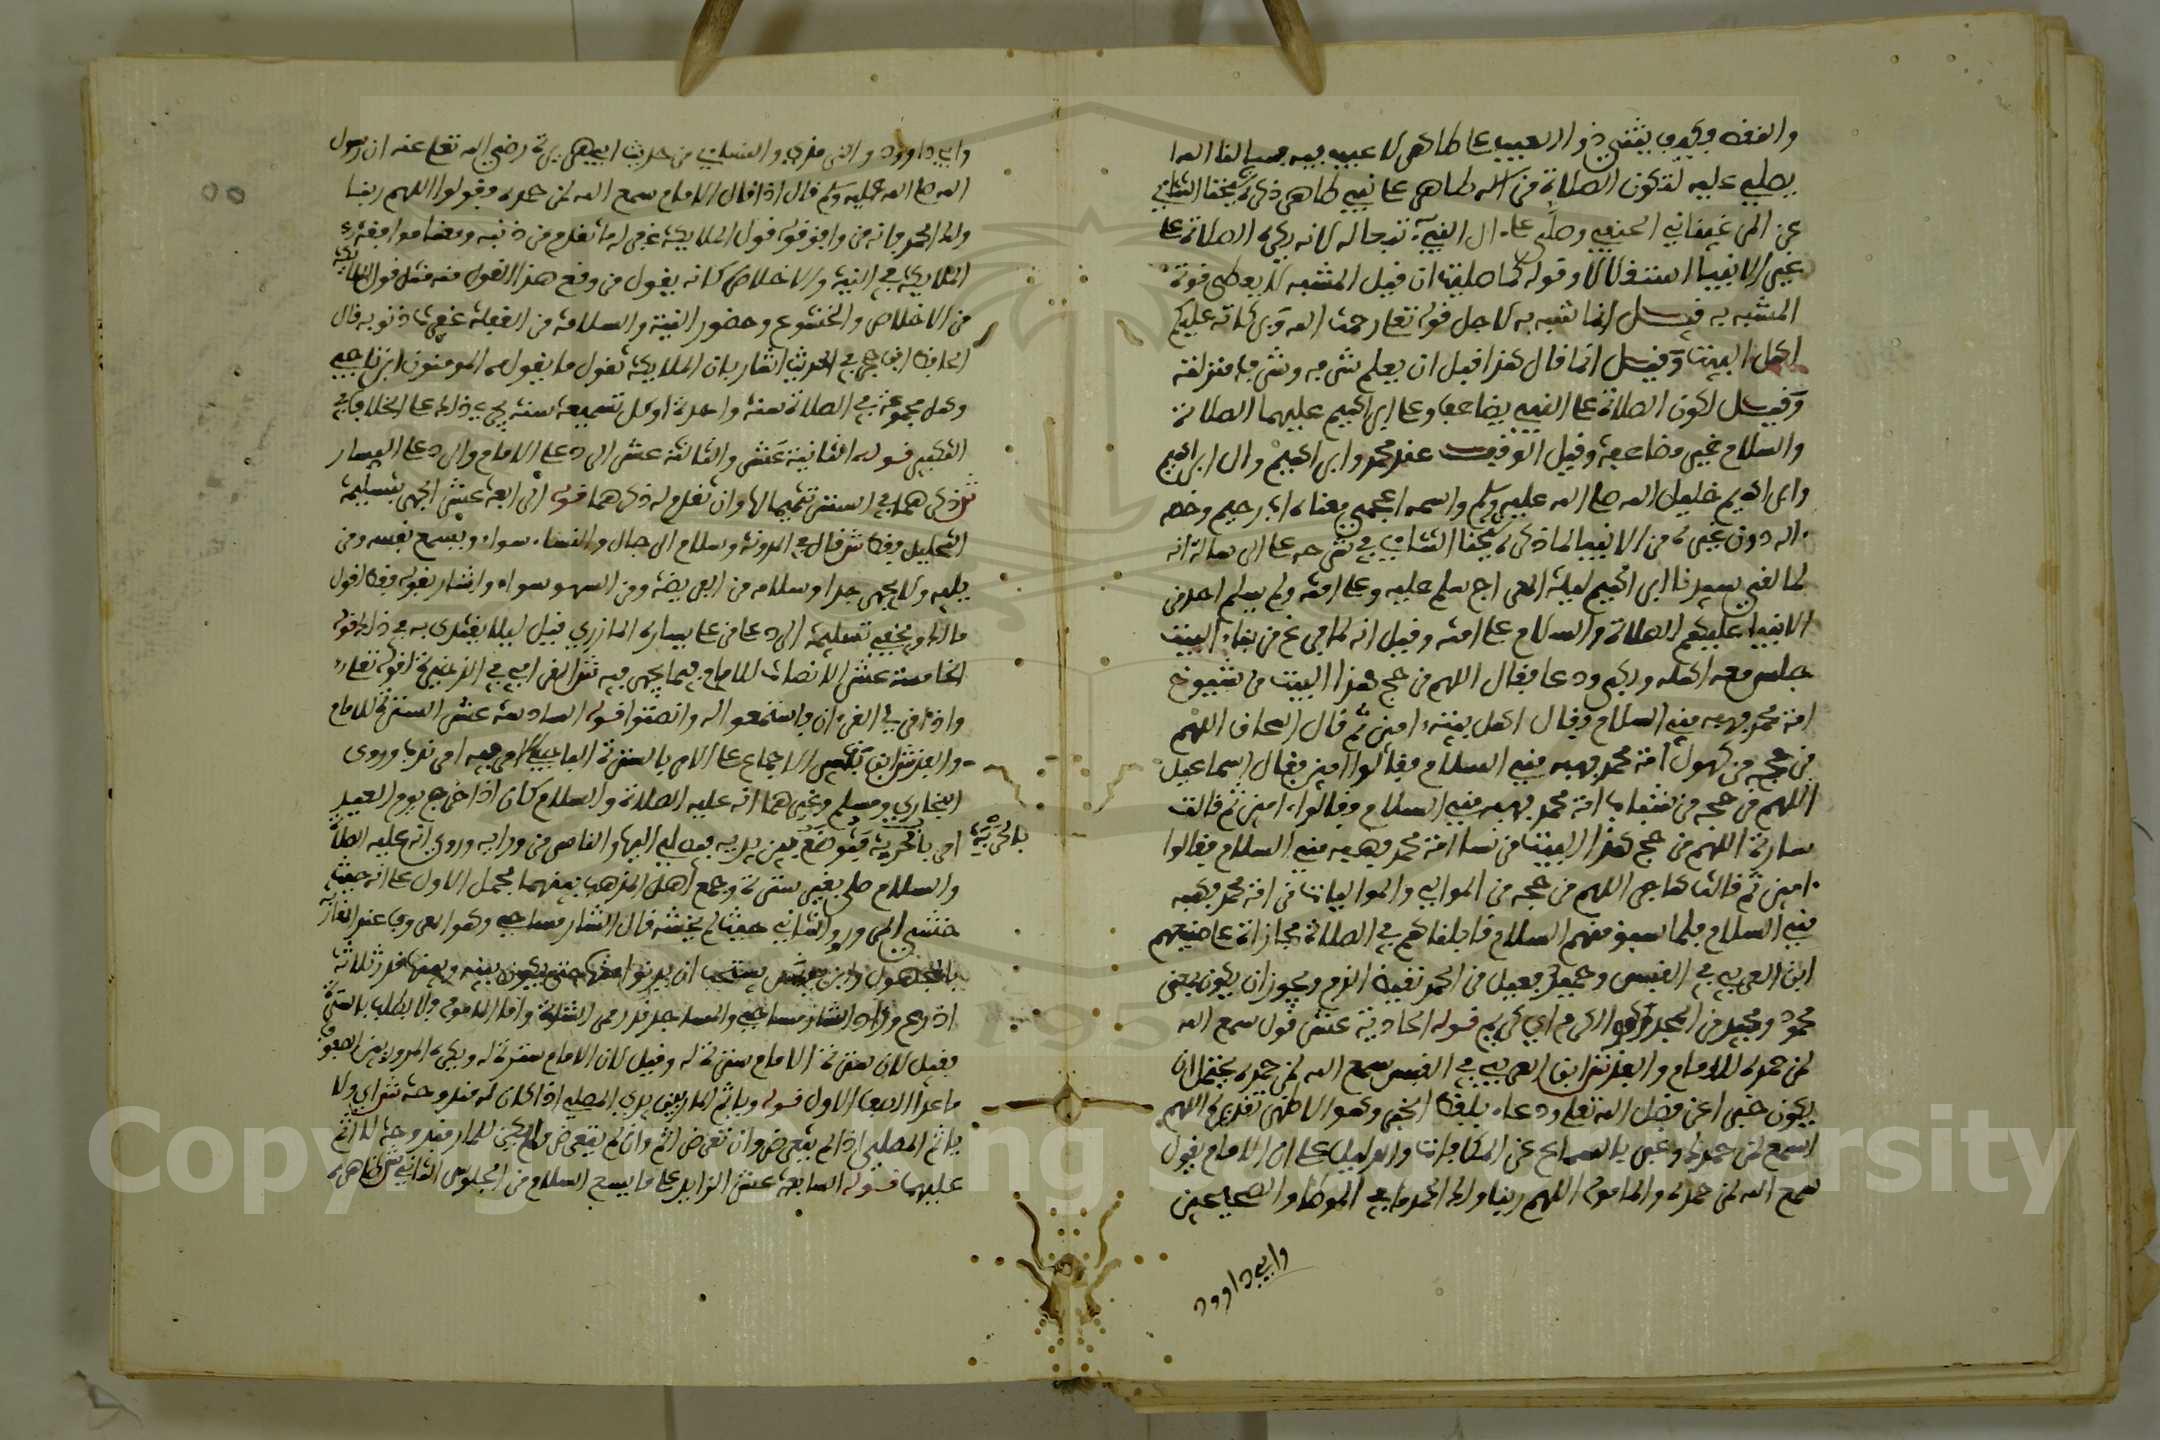 يصلي عليه لتكون الصلاة من الله طاهر على نبي طاهر ذكره شيخنا الشامي
غير الانبيا استقلالا وقوله كما صليت ان قيل المشبه لا يعطى قوة
المشبه به قيل انما شبه به لاجل قوله تعلى رحمت الله وبركاته عليكم
اهل البيت وقيل انما قال هذا قبل ان يعلم شرفه وشرف منزلته
وقيل لكون الصلاة على النبي يضاعفها وعلى ابراهيم عليهما الصلاة
والسلام غير مضاعفة وقيل الوقف عند محمد وابراهيم وال ابراهيم
وابراهيم خليل الله صلى الله عليه وسلم واسمه اعجمي معناه اب رحيم وخصه
اله دون غيره من الانبيا لما ذكره شيخنا الشامي في شرحه على الرسالة انه
لما لقي سيدنا ابراهيم ليلة المعراج سلم عليه وعلى امته ولم يسلم احد من
الانبيا عليهم الصلاة والسلام على امته وقيل انه لما فرغ من بناء البيت
جلس مع اهله وبكى ودعا فقال اللهم من حج هذا البيت من شيوخ
امة محمد فهبه مني السلام فقال اهل بيته امين ثم قال اسحاق اللهم
من حجه من كهول امة محمد فهبه مني السلام فقالوا امين فقال اسماعيل
اللهم من حجه من شباب امة محمد فهبه مني السلام فقالوا امين ثم قالت
سارة اللهم من حج هذا البيت من نسا امة محمد فهبه مني السلام فقالوا
امين ثم قالت هاجر اللهم من حجه من الموالي والمواليات من امة محمد فهبه
مني السلام فلما سبق منهم السلام قابلناهم في الصلاة مجازاة على صنيعهم
ابن العربي في القبس وحميد فعيل من الحمد نقيض الذم ويجوز ان يكون بمعنى
محمود ومجيد من المجد وهو الكرم اي كريم قوله الحادية عشر قول سمع الله
لمن حمده للامام والفذ ش ابن العربي في القبس سمع الله لمن حمده يحتمل ان
يكون خبرا عن فضل الله تعلى ودعاء بلفظ الخبر وهو الاظهر تقديره اللهم
اسمع لمن حمدك وعبر بالسماع عن المكافات والدليل على ان الامام يقول
سمع الله لمن حمده والماموم اللهم ربنا ولك الحمد ما في الموطا والصحيحين
وابي داوود
وابي داوود والترمذي والنسائي من حديث ابي هريرة رضي الله تعلى عنه ان رسول
الله صلى الله عليه وسلم قال اذا قال الامام سمع الله لمن حمده فقولوا اللهم ربنا
ولك الحمد فانه من وافق قوله قول الملايكة غفر له ما تقدم من ذنبه ومعنا موافقة
الملايكة في النية والاخلاص كانه يقول من وقع هذا القول منه مثل قول الملايكة
من الاخلاص والخشوع وحضور النية والسلامة من الغفلة غفرت ذنوبه قال
الحافظ ابن حجر في الحديث اشعار بان الملايكة تقول ما يقوله المومنون ابن ناجي
وهل مجموعه في الصلاة سنة واحدة او كل تسميعة سنة يجري ذلك على الخلاف في
التكبير قوله الثانية عشر والثالثة عشر الرد على الامام والرد على اليسار
ش ذكرهما في السنن تتميما لها وان تقدم له ذكرهما قوله الرابعة عشر الجهر بتسليمة
التحليل فقط ش قال في المدونة وسلام الرجال والنساء سواء ويسمع نفسه ومن
يليه ولا يجهر جدا وسلامه من الفريضة ومن السهو سواء واشار بقوله فقط لقول
مالك ويخفي تسليمة الرد على من على يساره المازري قيل ليلا يقتدى به في ذلك قوله
الخامسة عشر الانصات للامام فيما يجهر فيه ش القرافي في الذخيرة لقوله تعلى
واذا قرئ القرءان فاستمعوا له وانصتوا قوله السادسة عشر السترة للامام
والفذ ش ابن يونس الاجماع على الامر بالسترة الباجي امر فيه امر ندب وروى
البخاري ومسلم وغيرهما انه عليه الصلاة والسلام كان اذا خرج يوم العيد
امر بالحربة فتوضع بين يديه فيصلي اليها والناس من ورايه وروي انه عليه الصلاة
بالحربة
والسلام صلى بغير سترة وجمع اهل المذهب بينهما بحمل الاول على انه حيث
خشي المرور والثاني حيث لم يخشه قال الشارمساحي وهو المعروف عند الفقهاء
اذرع وزاد الشارمساحي والمساجد قدر ممر الشاة واما الماموم فلا يطلب بالسترة
فقيل لان سترة الامام سترة له وقيل لان الامام سترة له ويكره المرور بين الصفوف
ما عدا الصف الاول قوله وياثم المار بين يدي المصلي اذا كان له مندوحة ش اي ولا
ياثم المصلي اذا لم يتعرض وان تعرض اثم وان لم يتعرض ولم يكن للمار مندوحة لا اثم
عليهما قوله السابعة عشر الزايد على ما يسع السلام من الجلوس الثاني ش ظاهره
Copyright © King Saud University